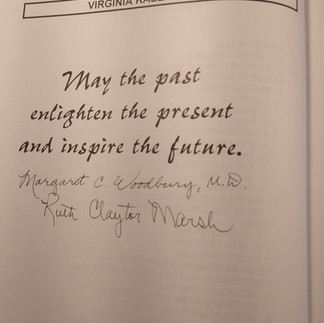 VIRGINIA
May the past
enlighten the present
and inspire the future.
Margaret C. Woodbury, M.D.
Ruth Claytor Marsh